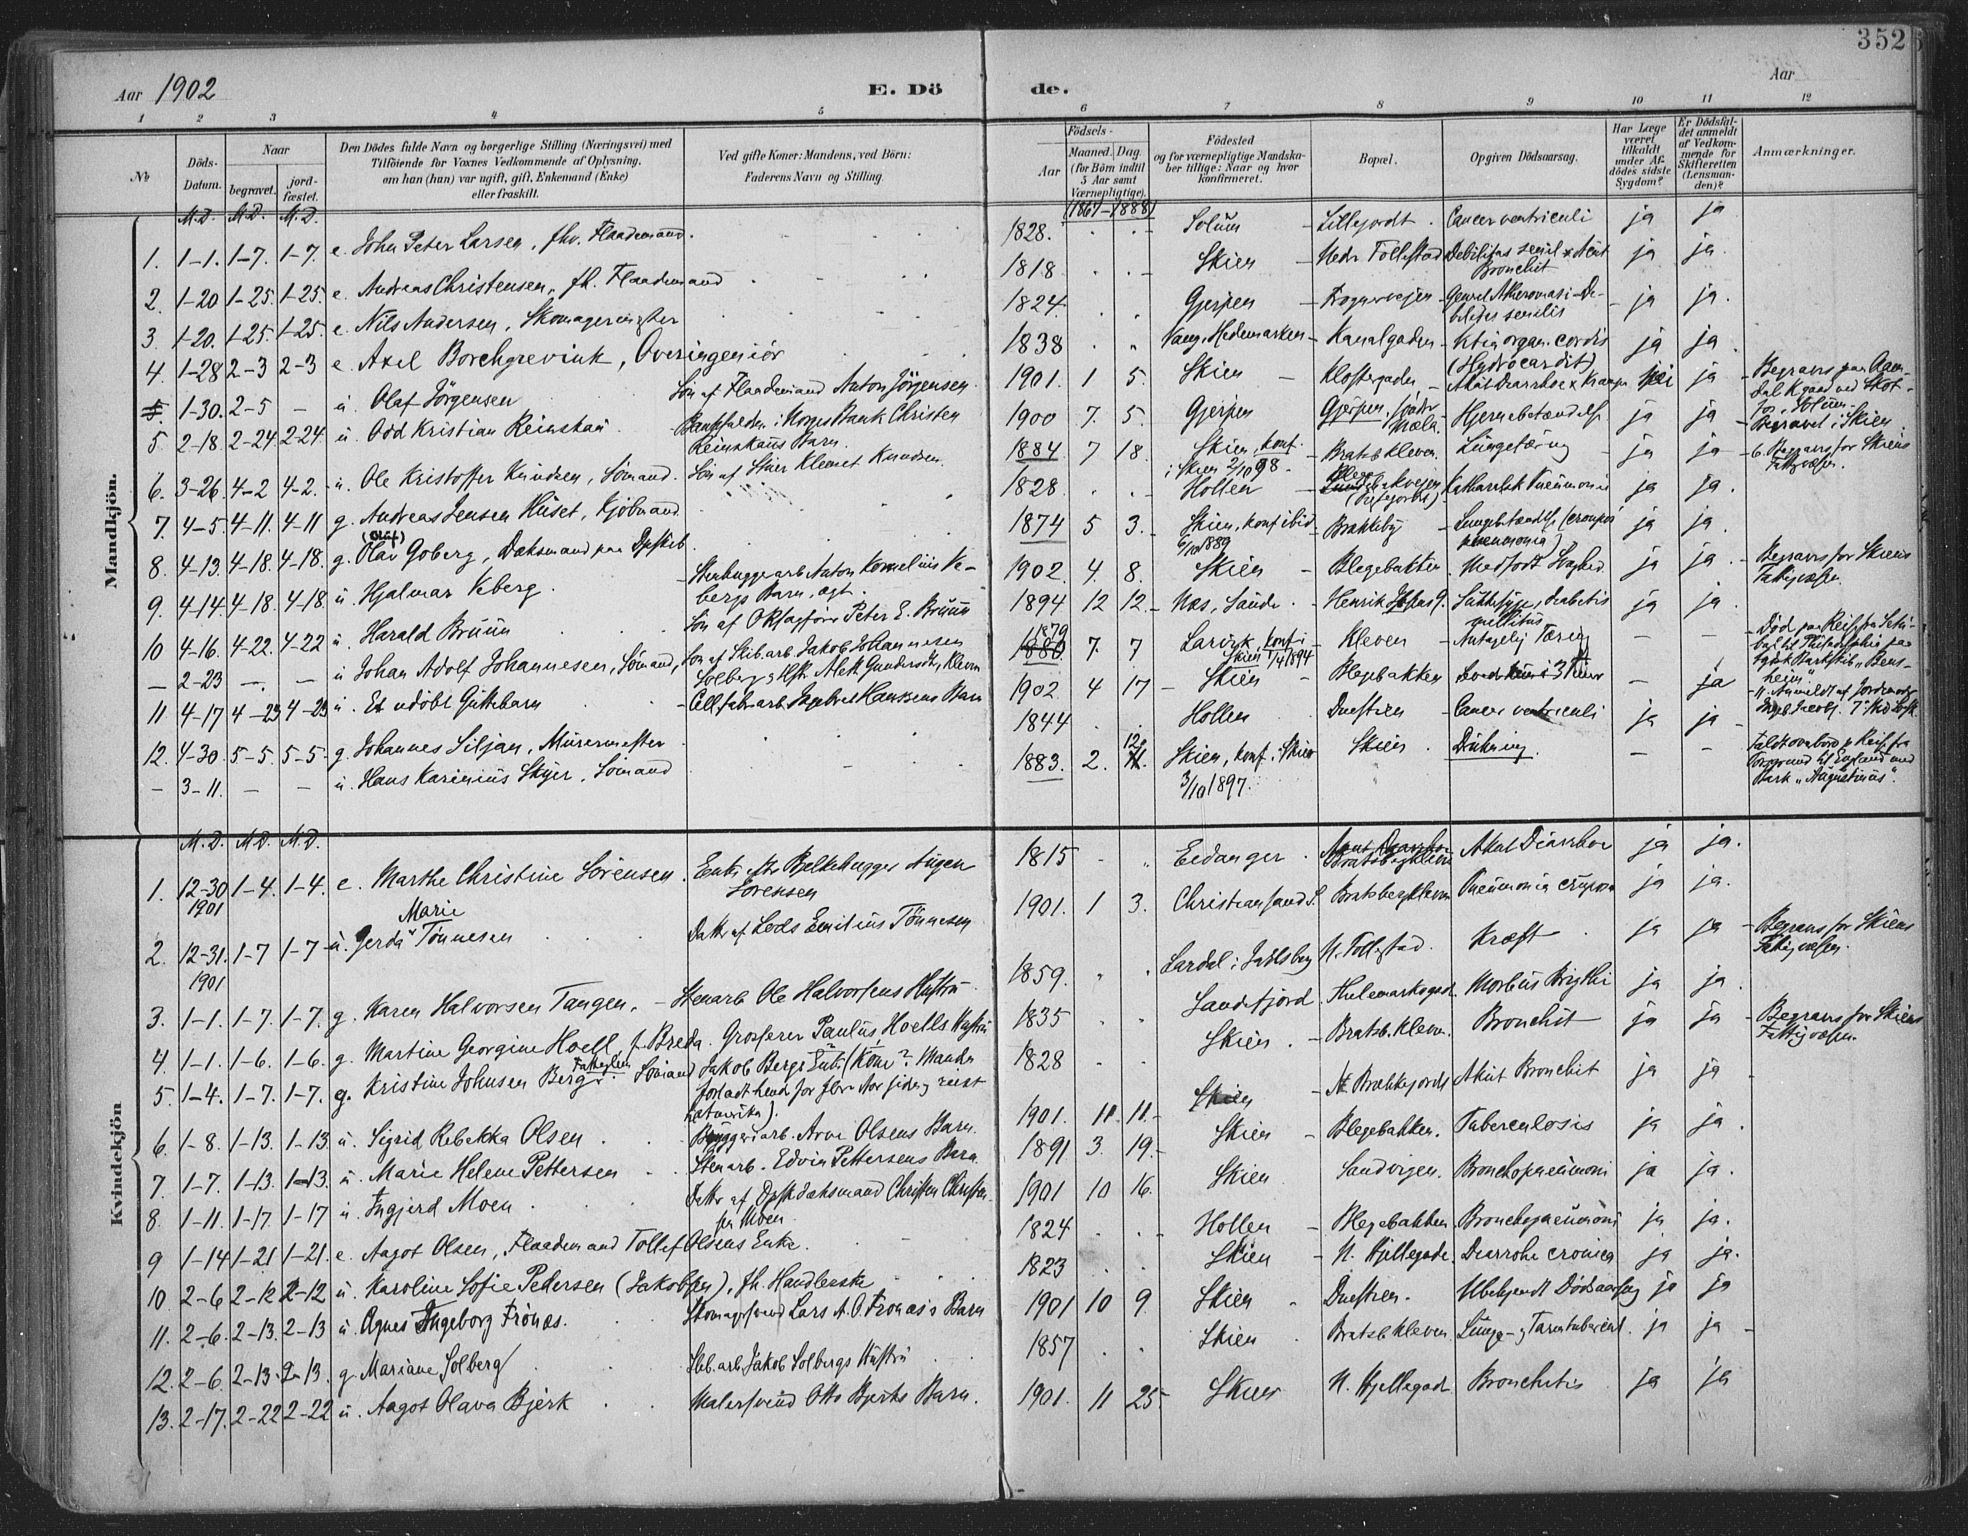 352
Aar 1902
E. Dö de.
Aar
1 2 3 4 5 6 7 8 9 10 11 12
№
Döds-Datum.
Naar
begravet.
jord-fæstet.
Den Dödes fulde Navn og borgerlige Stilling (Næringsvei) med
Tilföiende for Voxnes Vedkommende af Oplysning,
om han (hun) var ugift, gift, Enkemand (Enke)
eller fraskilt.
Ved gifte Koner: Mandens, ved Börn:
Faderens Navn og Stilling.
Födsels-
Aar
Maaned. Dag.
(for Börn indtil
5 Aar samt
Værnepligtige).
(1867-1888)
Födested
og for værnepligtige Mandska-
ber tillige: Naar og hvor
konfirmeret.
Bopæl.
Opgiven Dödsaarsag.
Har Læge
været
tilkaldt
under Af-
dödes sidste
Sygdom?
Er Dödsfal-
det anmeldt
af Vedkom-
mende for
Skifteretten
(Lensman-
den)?
Anmærkninger.
Mandkjön.
M.D. M.D. M.D.
1. 1-1. 1-7. 1-7. e. John Peter Larsen, fhv. Flaademand. 1828. Solum - Lillejordt. Cancer ventriculi ja ja
2. 1-20 1-25. 1-25. e. Andreas Christensen, fh. Flaademand 1818 Skien - Nedr Follestad Debilitas senil x Akut Bronchit ja ja.
3. 1-20. 1-25. 1-25. e. Nils Andersen, Skomagermester 1824. Gjerpen - ja ja.
4. 1-28 2-3 2-3 e. Axel Borchgrevink, Overingeniör 1838 Vang, Hedemarken - Kanalgaden - ja ja.
5. 1-30. 2-5 - u. Olaf Jörgensen Sön af Flaademand Anton Jörgensen 1901. 1 5. Skien - Klostergaden - ja - Begraves paa
5 2-18. 2-24 2-24. u. Odd Kristian Reinskau Norges Bank Christen Reinskaus Barn. 1900 7. 5. Gjerpen Gjerpen, Hjernebetændelse ja ja - Begravet i Skien
6. 3-26. 4-2 4-2. u. Ole Kristoffer Knudsen, Sömand. Sön af Klemet Knudsen. 1884 7 18. Skien, konf. i Skien 2/10 98 - Bratsb.kleven. Lungetæring - ja ja - 6. Begraves for Skiens Fattigvæsen.
7. 4-5. 4-11. 4-11 g. Andreas Jensen Huset, Kjöbmand 1828. Hollen Katharalsk Pneumoni ja ja.
8. 4-13. 4-18. 4-18. g. Olav (Olaf) Goberg, Dæksmand paa Dpskib. 1874 5 3. Skien, konf ibid 6/10 1889 - Brekkeby - (croupös pneumonia) ja ja.
9. 4-14. 4-18. 4-18. u. Hjalmar Veberg. - Anton Kornelius Vebergs Barn, ægt. 1902. 4. 8. Skien - Blegebakken. Medfödt Svaghed. ja ja. - Begraves for Skiens Fattigvæsen.
10 4-16. 4-22. 4-22 u. Harald Bruun Sön af Peter E. Bruun 1894 12 12. - Næs, Saude. - Henrik Ibsens g. Sukkersyge, diabetis mellitus ja ja.
- 2-23 - - u. Johan Adolf Johannesen, Sömand, Sön af Skib.arb. Jakob Johannesen 1879 1880 7. 7 Larvik, konf. i Skien 1894 - Kleven - Antagelig Tæring - -
11 4-17 4-23 4-23 u. Et udöbt Guttebarn Cell.fabr.arb. Hanssens Barn 1902 4 17 - Skien - Blegebakken - ja
12. 4-30. 5-5. 5-5. g. Johannes Siljan, Murermester 1844 Hollen - Duestien - Cancer ventriculi ja ja -
- 3-11. - - u. Hans Karinius Skyer, Sömand 1883. 2. 12. Skien, konf. i Skien 3/10 1897. Skien. Drukning. - - Faldt overbord p. Reise fra Porsgrund til England med Bark "Augustinus".
Kvindekjön
M.D. M.D. M.D.
1. 12-30 1901 1-4. 1-4. e. Marthe Christine Sörensen. Enke efter Bjelkehugger Sörensen 1815 Eidanger. Bratsbergkleven Akut Diarrhoe ja ja.
2. 12-31. 1901 1-7 1-7 - u. Gerda Marie Tönnesen Datter af Lods Emilius Tönnesen 1901. 1 3. Christiansand S. Bratsbergkleven Pneumonia cruposa ja ja.
3. 1-1. 1-7. 1-7. g. Karen Halvorsen Tangen. - Stenarb Ole Halvorsens Hustru 1859. Lardal i Jarlsberg N. Follestad. Kræft ja ja - Begraves for Skiens Fattigvæsen.
4. 1-1. 1-6. 1-6. g. Martine Georgine Hoell f. Breda. Grosserer Paulus Hoells Hustru 1835 Sandefjord Thelemarksgad. Morbus Brigthi ja ja.
5. 1-4. 1-7. 1-7. g. Kristine Johnsen Berg, Sömand Jakob Bergs Enke (Kone?) 1828 Skien. - Bratsb.kleven. Bronchit ja ja - Begraves for Skiens Fattigvæsen.
6. 1-8. 1-13. 1-13. u. Sigrid Rebekka Olsen. Bryggeriarb. Arne Olsens Barn 1901. 11. 11. - Skien Akut Bronchit ja ja
7. 1-7. 1-13. 1-13. u. Marie Helene Pettersen Stenarb. Edvin Pettersens Barn 1891 3. 19. - Skien - Blegebakken. Tuberculosis ja ja.
8. 1-11. 1-17. 1-17 u. Ingjerd Moen. Datter af Dpsk.dæksmand Christen Christensen Moen 1901 10 16. Skien Landvigen. Bronchopneumoni ja ja.
9 1-14 1-21 1-21. e. Aagot Olsen, Flaademand Tollef Olsens Enke. 1824 Hollen - Blegebakken Bronchopneumoni ja ja.
10. 2-6 2-12 2-12 u. Karoline Sofie Pedersen (Jakobsen), fh. Handlerske 1823 Skien - N. Hjellegade. Diarrohe cronica ja ja.
11. 2-6. 2-13. 2-13 u. Agnes Ingeborg Frönæs. Skomagersvend Lars A. O. Frönæs's Barn 1901 10 9. Skien Duestien. Ubekjendt Dödsaarsag ja ja
12. 2-6. 2-13. 2-13. g. Mariane Solberg Skb.arb. Jakob Solbergs Hustru 1857 Skien Bratsb.kleven Lunge- og Tarmtuberkul. ja ja -
13. 2-17. 2-22 2-22 u. Aagot Olava Bjerk Malersvend Otto Bjerks Barn. 1901. 11 25. Skien N. Hjellegad. Bronchitis ja ja